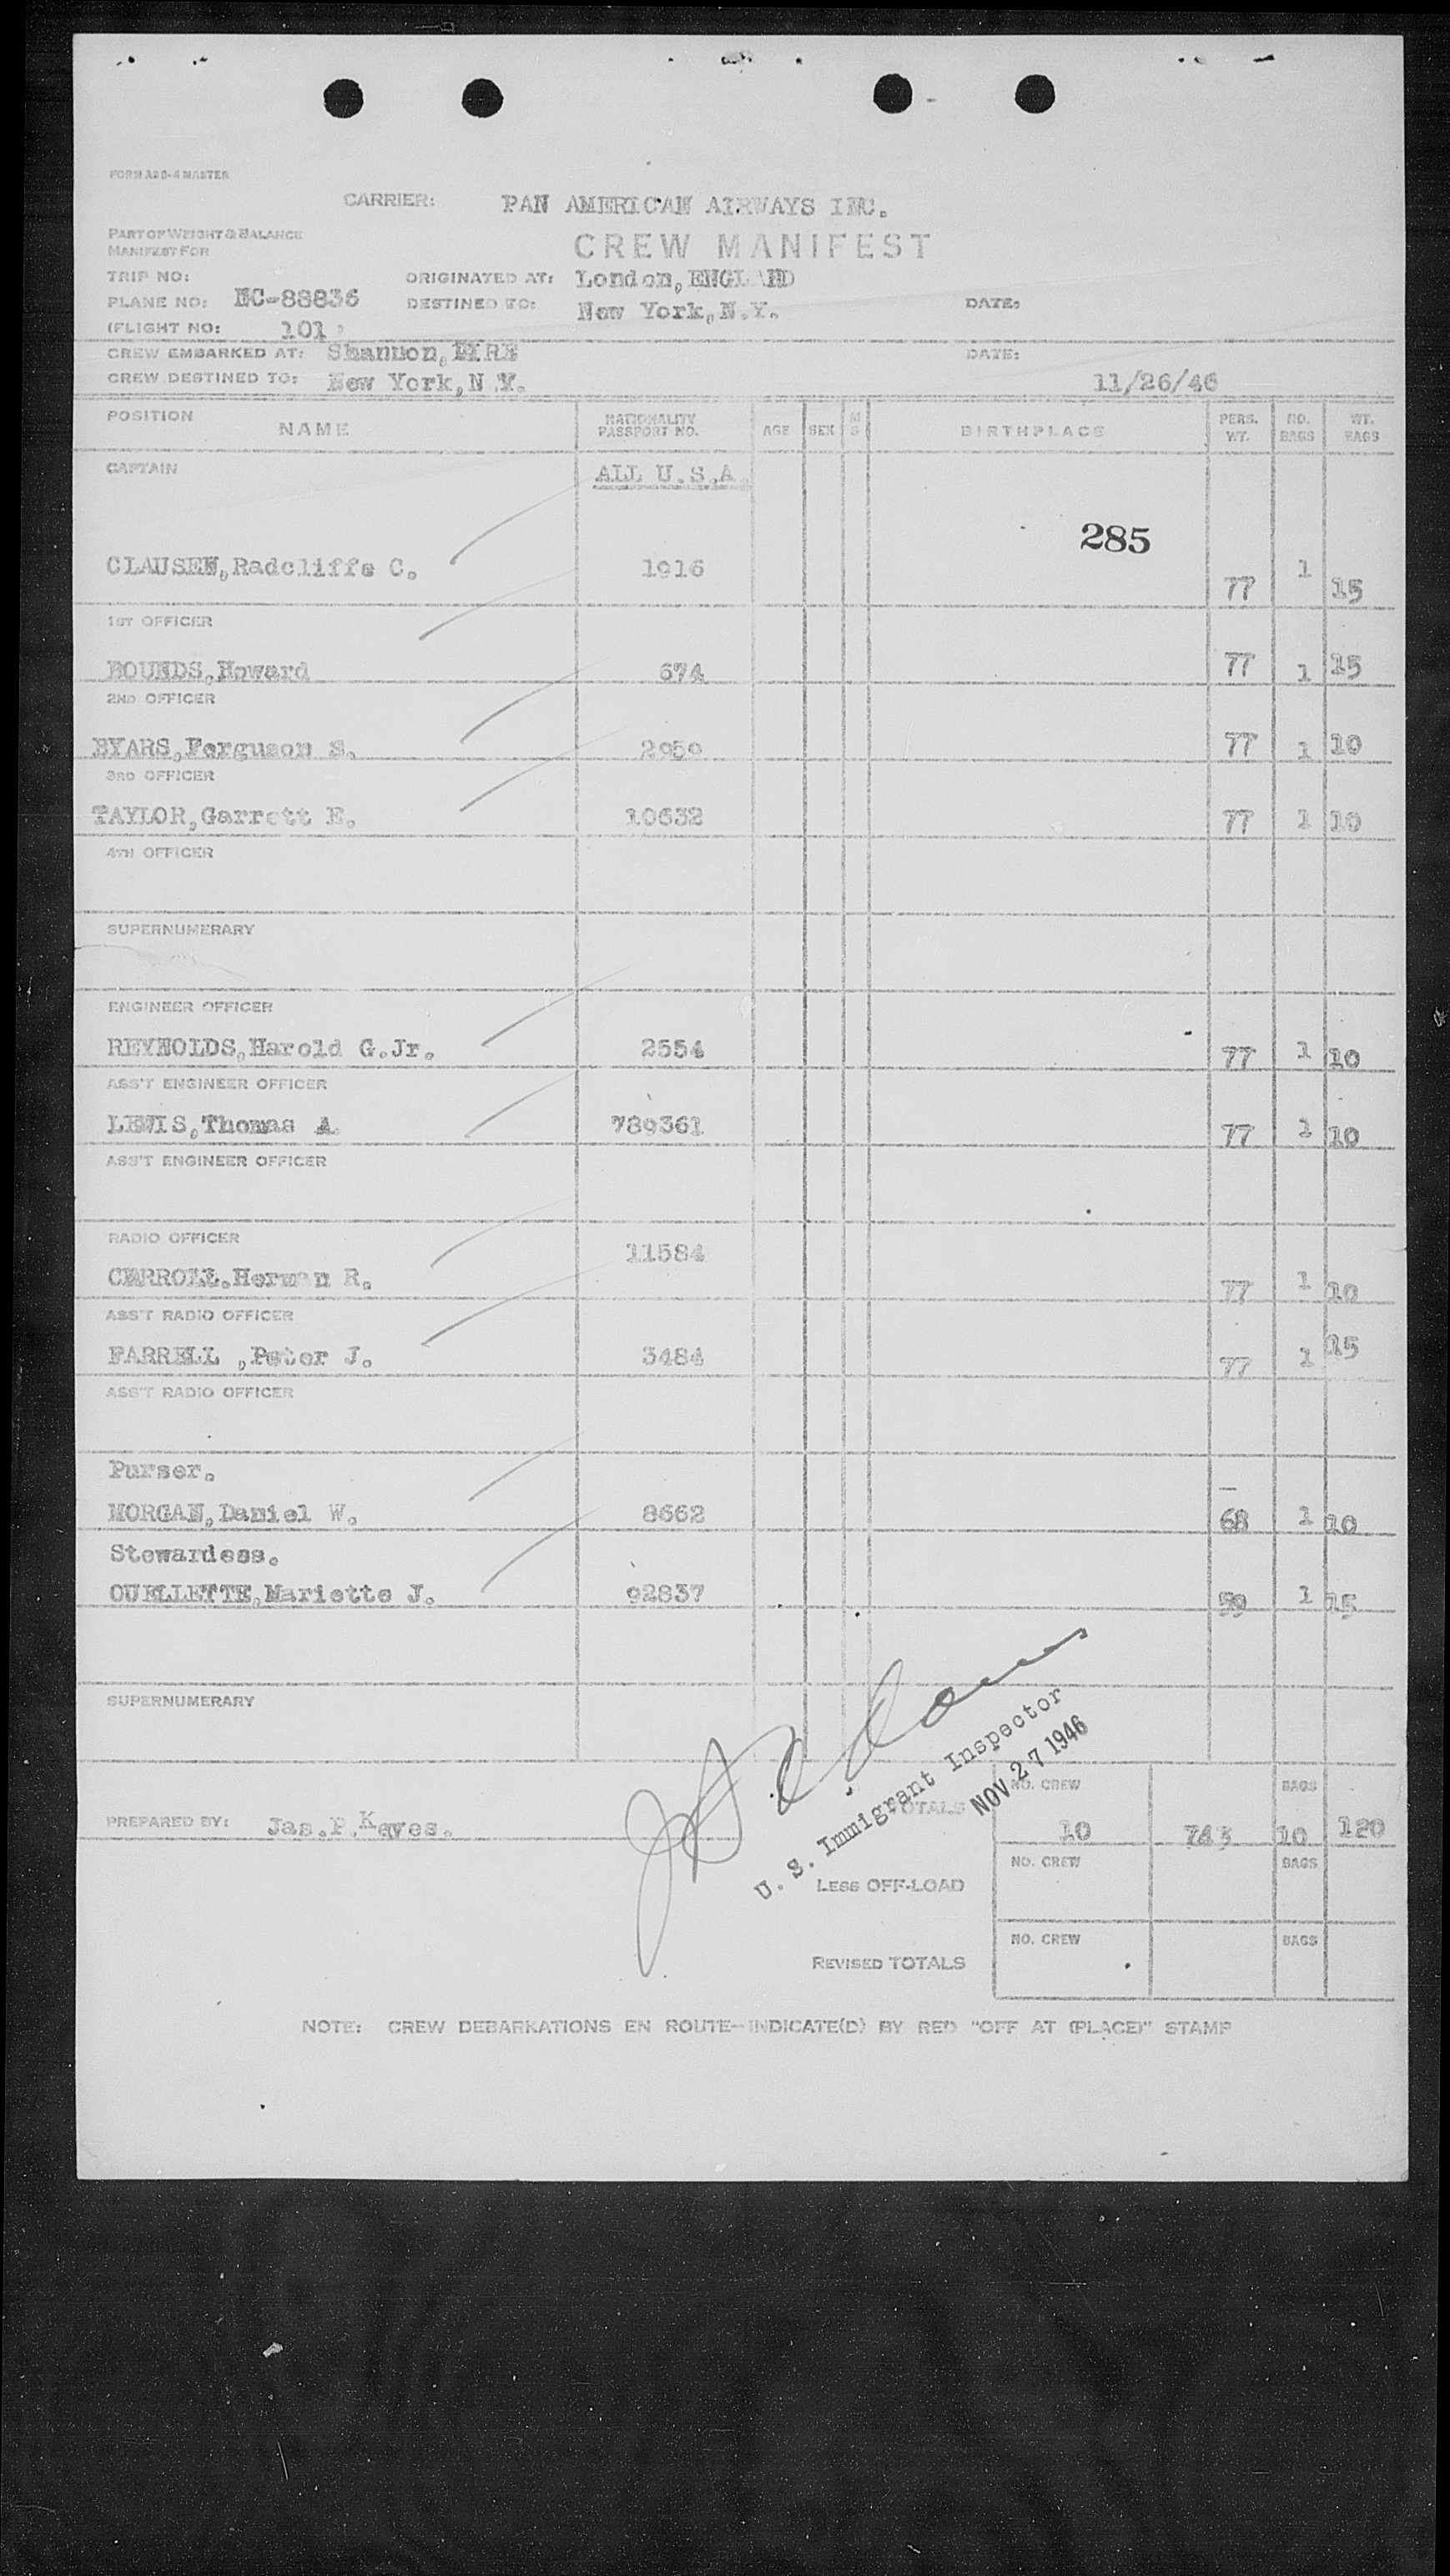 FORM ABD-4 MASTER
CARRIER: PAN AMERICAN AIRWAYS INC.
PART OF WEIGHT & BALANCE
MANIFEST FOR
CREW MANIFEST
TRIP NO: ORIGINATED AT: London, ENGLAND
PLANE NO: NC-88836 DESTINED TO: New York, N.Y. DATE:
(FLIGHT NO: 101
CREW EMBARKED AT: Shannon, EIRE DATE:
CREW DESTINED TO: New York, N.Y. 11/26/46
POSITION NAME NATIONALITY PASSPORT NO. AGE SEX M S BIRTHPLACE PERS. WT. NO. BAGS WT. BAGS
CAPTAIN ALL U.S.A.
285
CLAUSEN, Radcliffe C. 1916 77 1 15
1ST OFFICER
BOUNDS, Howard 674 77 1 15
2ND OFFICER
BYARS, Ferguson S. 2959 77 1 10
3RD OFFICER
TAYLOR, Garrett E. 10632 77 1 10
4TH OFFICER
SUPERNUMERARY
ENGINEER OFFICER
REYNOLDS, Harold G.Jr. 2554 77 1 10
ASS'T ENGINEER OFFICER
LEWIS, Thomas A. 789361 77 1 10
ASS'T ENGINEER OFFICER
RADIO OFFICER
CARROLL. Herman R. 11584 77 1 10
ASS'T RADIO OFFICER
FARRELL , Peter J. 3484 77 1 15
ASS'T RADIO OFFICER
Purser.
MORGAN, Daniel W. 8662 68 1 10
Stewardess.
OUELLETTE, Mariette J. 92837 59 1 15
SUPERNUMERARY
U. S. Immigrant Inspector
NOV 27 1946
NO. CREW BAGS
PREPARED BY: Jas.P.Keyes. TOTALS 10 743 10 120
NO. CREW BAGS
LESS OFF-LOAD
NO. CREW BAGS
REVISED TOTALS
NOTE: CREW DEBARKATIONS EN ROUTE—INDICATE(D) BY RED "OFF AT (PLACE)" STAMP